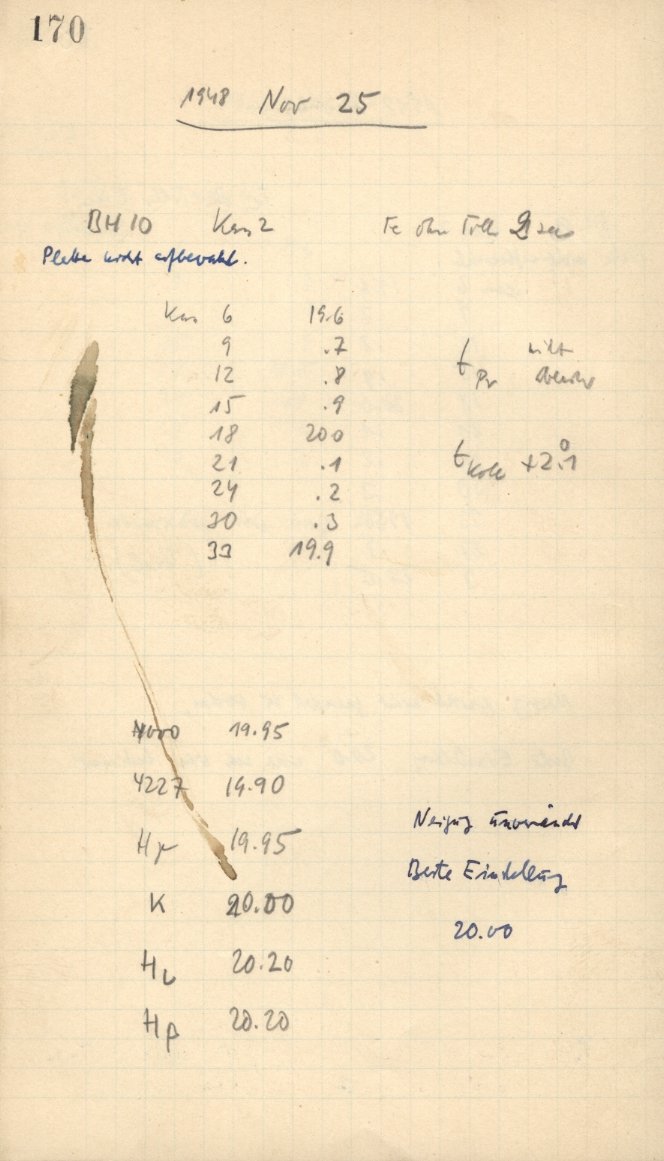 170
1948 Nov 25
BH 10 Kas 2 Fe ohne Filter 2 sec
Platte nicht aufbewahrt.
Kas 6 19.6
9 .7
12 .8
15 .9
18 200
21 .1
24 .2
30 .3
33 19.9
t Pr nicht
t Koll +2.°1
4000 19.95
4227 19.90
Hγ 19.95
K 20.00
Hδ 20.20
Hβ 20.20
Neigung unverändert
Beste Einstellung
20.00